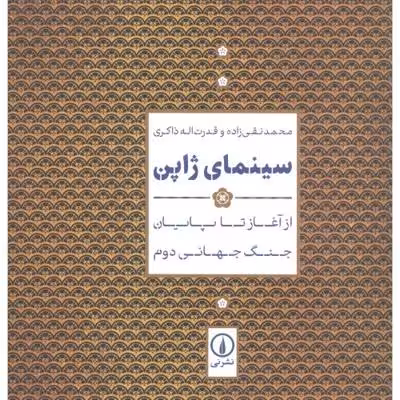 محمد نقی‌زاده و قدرت‌اله ذاکری
سینمای ژاپن
از آغاز تا پایان
جنگ جهانی دوم
نشرنی